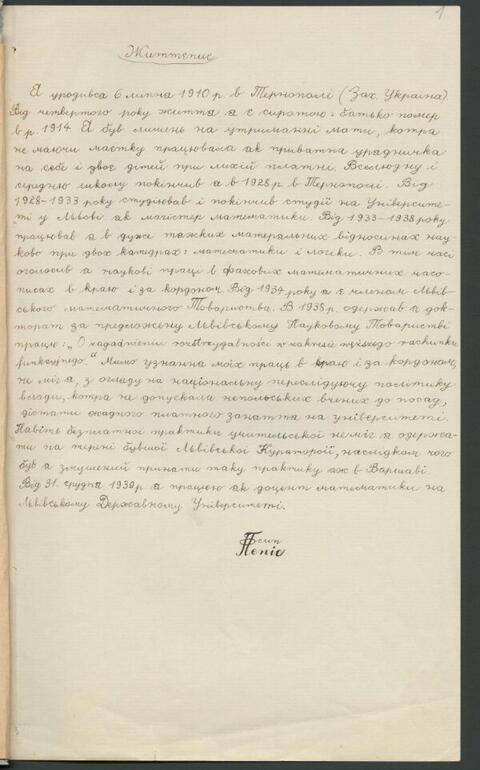 1
Життепис
Я уродився 6 липня 1910 р. в Тернополі (Зах. Україна)
Від четвертого року життя я є сиротою: батько помер
в р. 1914. Я був лишень на утриманні мати, котра
не маючи маєтку працювала як приватна урядничка
на себе і двоє дітей при лихій платні. Вселюдну і
середню школу покінчив я в 1928 р в Тернополі. Від
1928-1933 року студіював і покінчив студії на Університе-
ті у Львові як магістер математики. Від 1933-1938 року
працював я в дуже тяжких матеральних відносинах нау-
ково при двох катедрах: математики і логіки. В тім часі
оголосив я наукові праці в фахових математичних часо-
писах в краю і за кордоном. Від 1934 року я є членом Львів-
ського математичного Товариства. В 1938 р. одержав я док-
торат за предложену Львівському Науковому Товаристві
працю: „O zagadnieniu rozstrzygalności w zakresie węższego rachunku
funkcyjnego." Мимо узнання моїх праць в краю і за кордоном,
не міг я, з огляду на національну переслідуючу політику
влади, котра не допускала непольських вчених до посад,
дістати жадного платного заняття на університеті.
Навіть безплатної практики учительської не міг я одержа-
ти на терені бувшої Львівської Кураторії, наслідком чого
був я змушений приняти таку практику аж в Варшаві.
Від 31. грудня 1939 р я працюю як доцент математики на
Львівському Державному Університеті.
Йосип
Пепіс